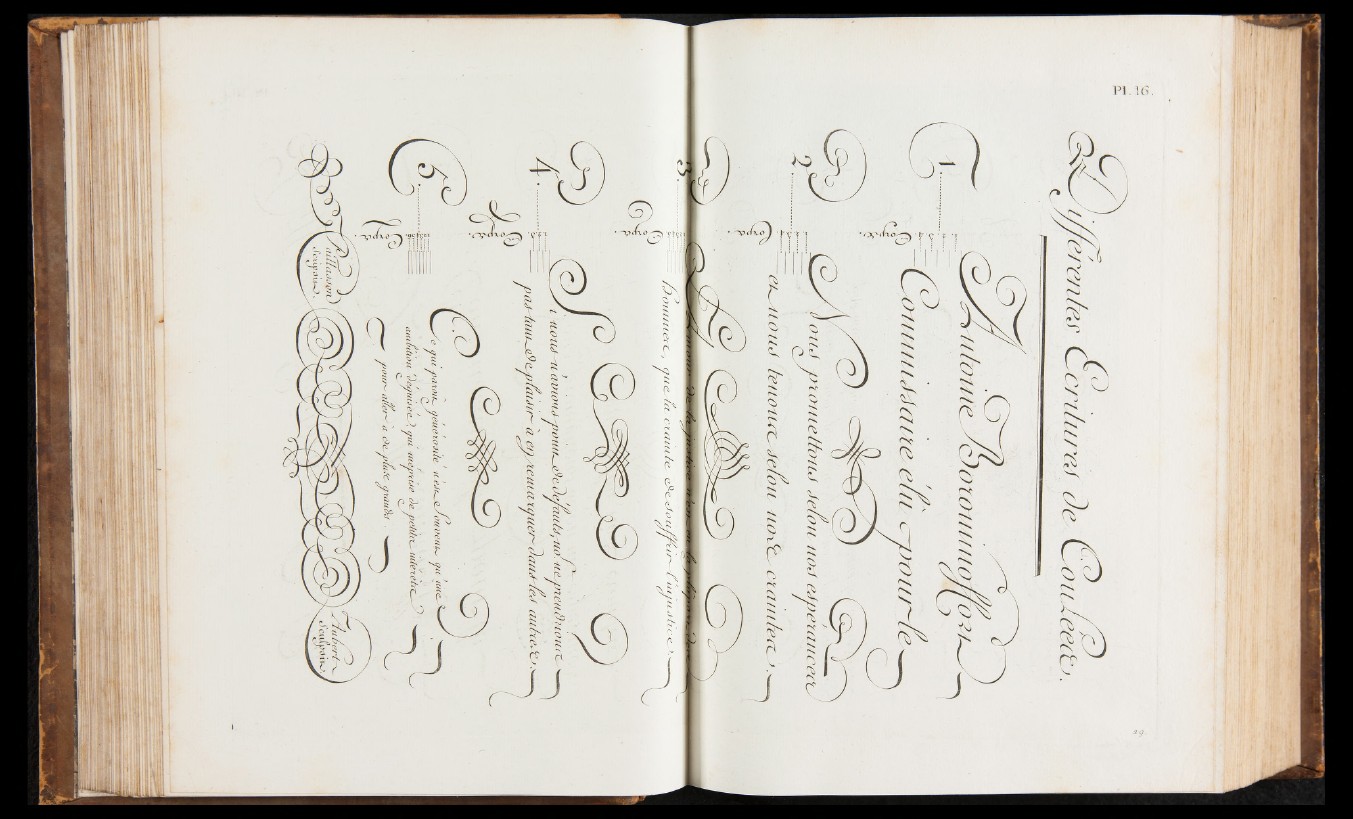 Pl. 16.
Différentes Ecritures de Coulées.
1
Corps.
1 2 3 4 5
Antoine Boromino
Commissaire élu pour le
2
Corps.
1 2 3 4
Nous promettons selon nos esperances
et nous tenons selon nos craintes.
3.
Corps.
L'Amour de la justice n'est en la plûpart des
hommes, que la crainte de souffrir l'injustice.
4.
Corps.
1 2 3
Si nous n'avions point de défauts, nous ne prendrions
pas tant de plaisir à en remarquer dans les autres.
5
Corps.
Ce qui paroit générosité n'est souvent qu'une
ambition déguisée, qui méprise de petits interêts
pour aller à de plus grands.
Paillasson Scripsit.
Aubert Sculpsit.
29